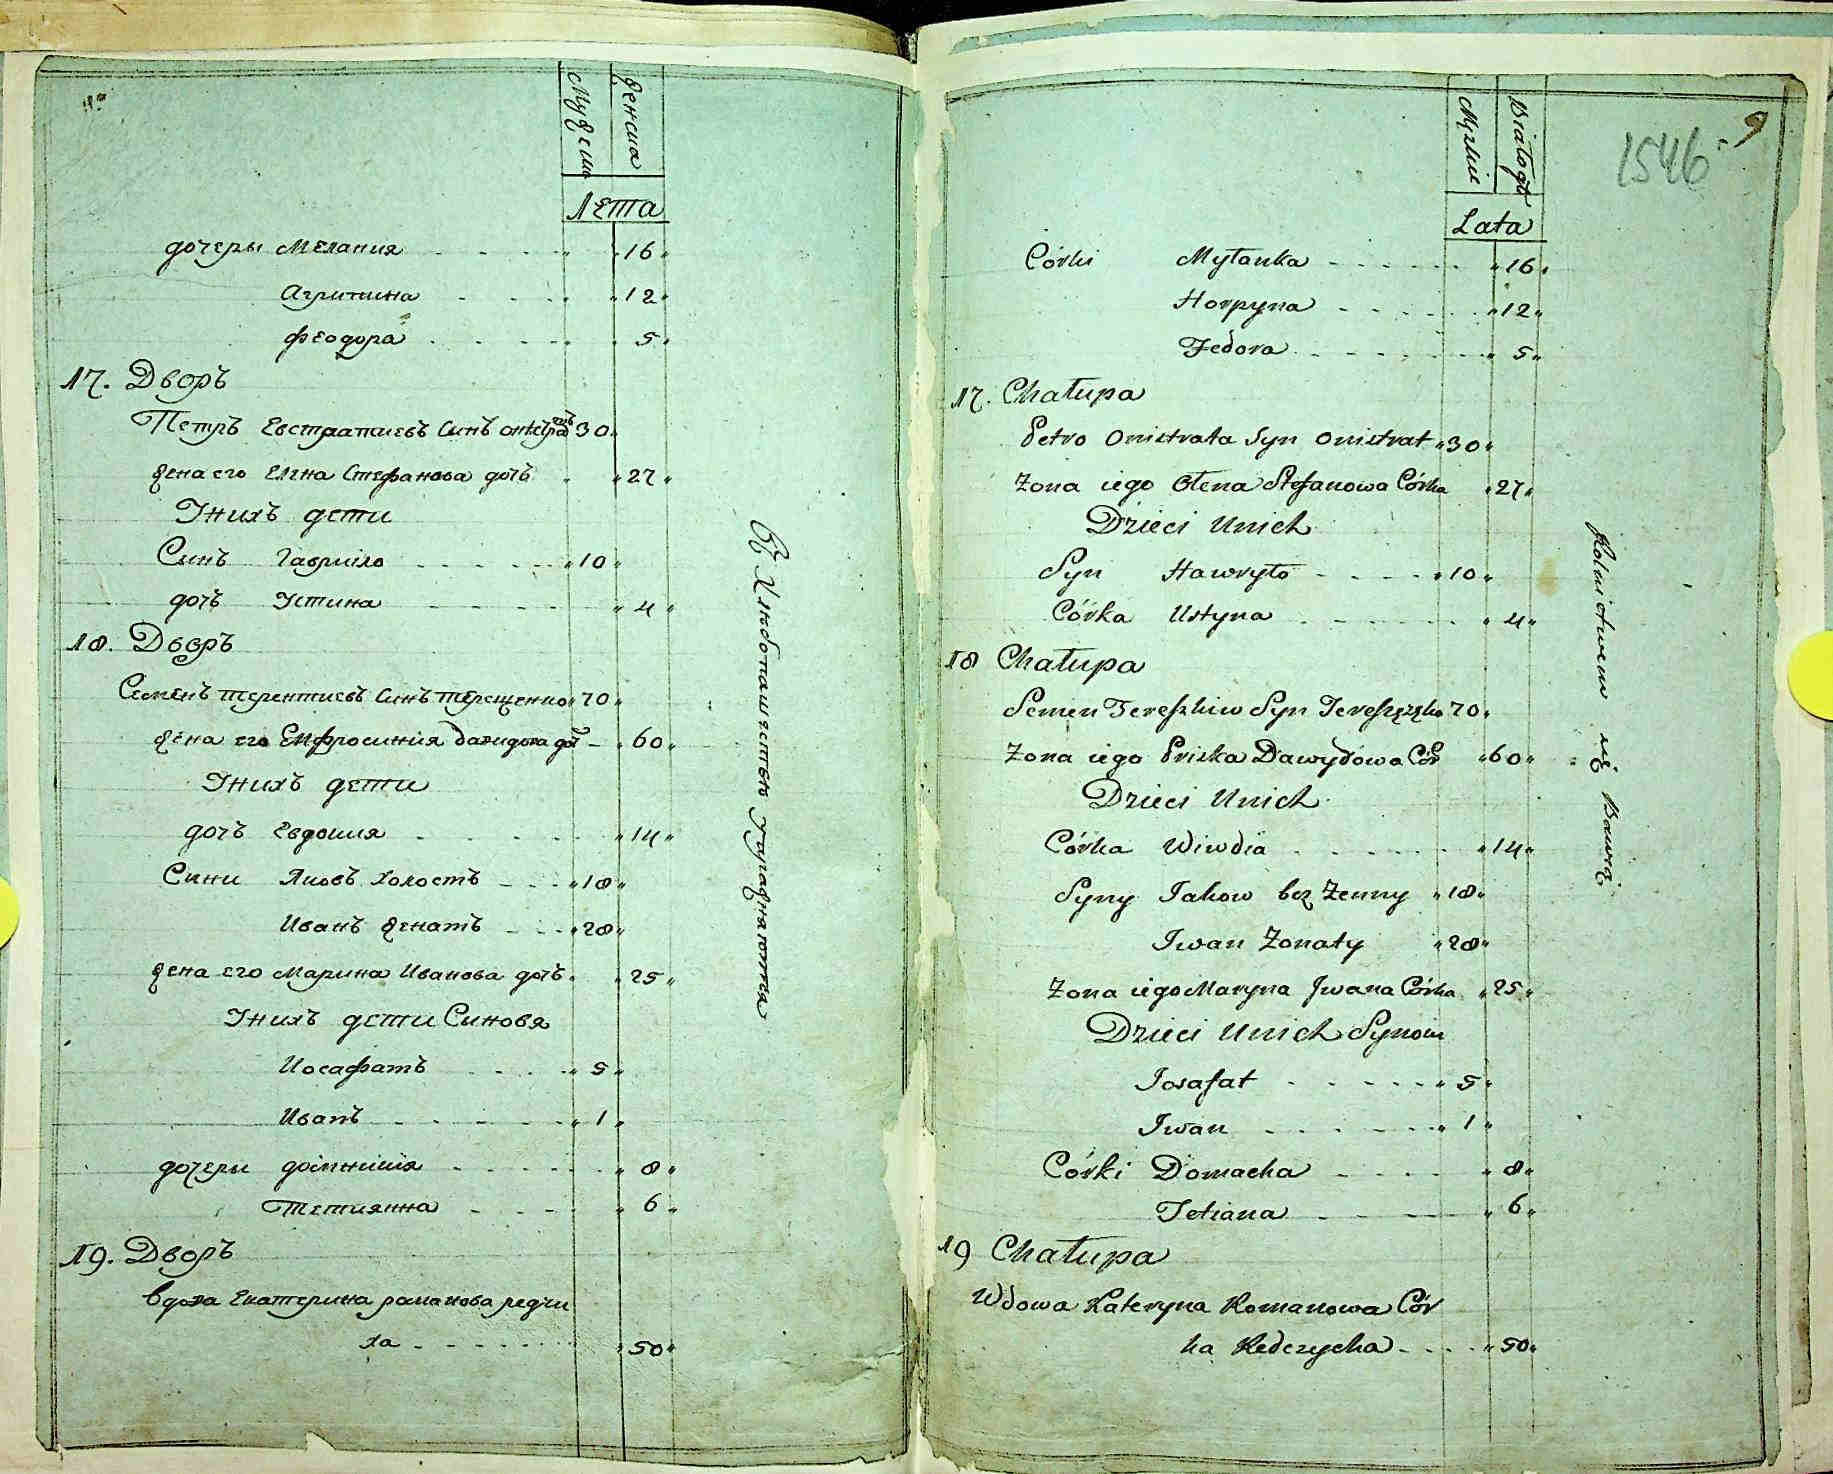 Мужеска
Женска
Лета
дочеры Мелания - - - " 16 "
Агрипина - - - " 12 "
феодора - - - " 5 "
17. Дворъ
Петръ Евстратиевъ Синъ " 30 "
Жена его Елена Стефанова дочъ " 27 "
Унихъ дети
Синъ Гаврило - - - " 10 "
дочъ Устина - - - " 4 "
18. Дворъ
Семенъ терентиевъ Синъ терещенко " 70 "
Жена его Ефросиния давидова доч - " 60 "
Унихъ дети
дочъ Евдокия - - - " 14 "
Сини Яковъ Холостъ - - " 18 "
Иванъ Женатъ - - " 28 "
Жена его Марина Иванова дочъ " 25 "
Унихъ дети Синовя
Иосафатъ - - - " 5 "
Иванъ - - - " 1 "
дочери домникия - - - " 8 "
Тетиянна - - - " 6 "
19. Дворъ
Вдова Екатерина романова редчи
ха - - - " 50 "
Хлебопашеством упражняются
1546
9
Męzkie
Białogło
Lata
Córki Myłanka - - - " 16 "
Horpyna - - - " 12 "
Fedora - - - " 5 "
17. Chałupa
Petro Onistrata Syn Onistrat " 30 "
Zona iego Ołena Stefanowa Córka " 27 "
Dzieci Unich
Syn Hawryło - - - " 10 "
Córka Ustyna - - - " 4 "
18 Chałupa
Semen Tereszkiw Syn " 70 "
Zona iego Priska Dawydowa Cór " 60 "
Dzieci Unich
Córka Wiwdia - - - " 14 "
Syny Jakow bez Zenny " 18 "
Iwan Zonaty " 28 "
Zona iego Maryna Iwana Córka " 25 "
Dzieci Unich Synow
Iosafat - - - " 5 "
Iwan - - - " 1 "
Córki Domacha - - - " 8 "
Tetiana - - - " 6 "
19 Chałupa
Wdowa Kateryna Romanowa Cór
ka Redczycha - - - " 50 "
Rolnictwem się Bawią